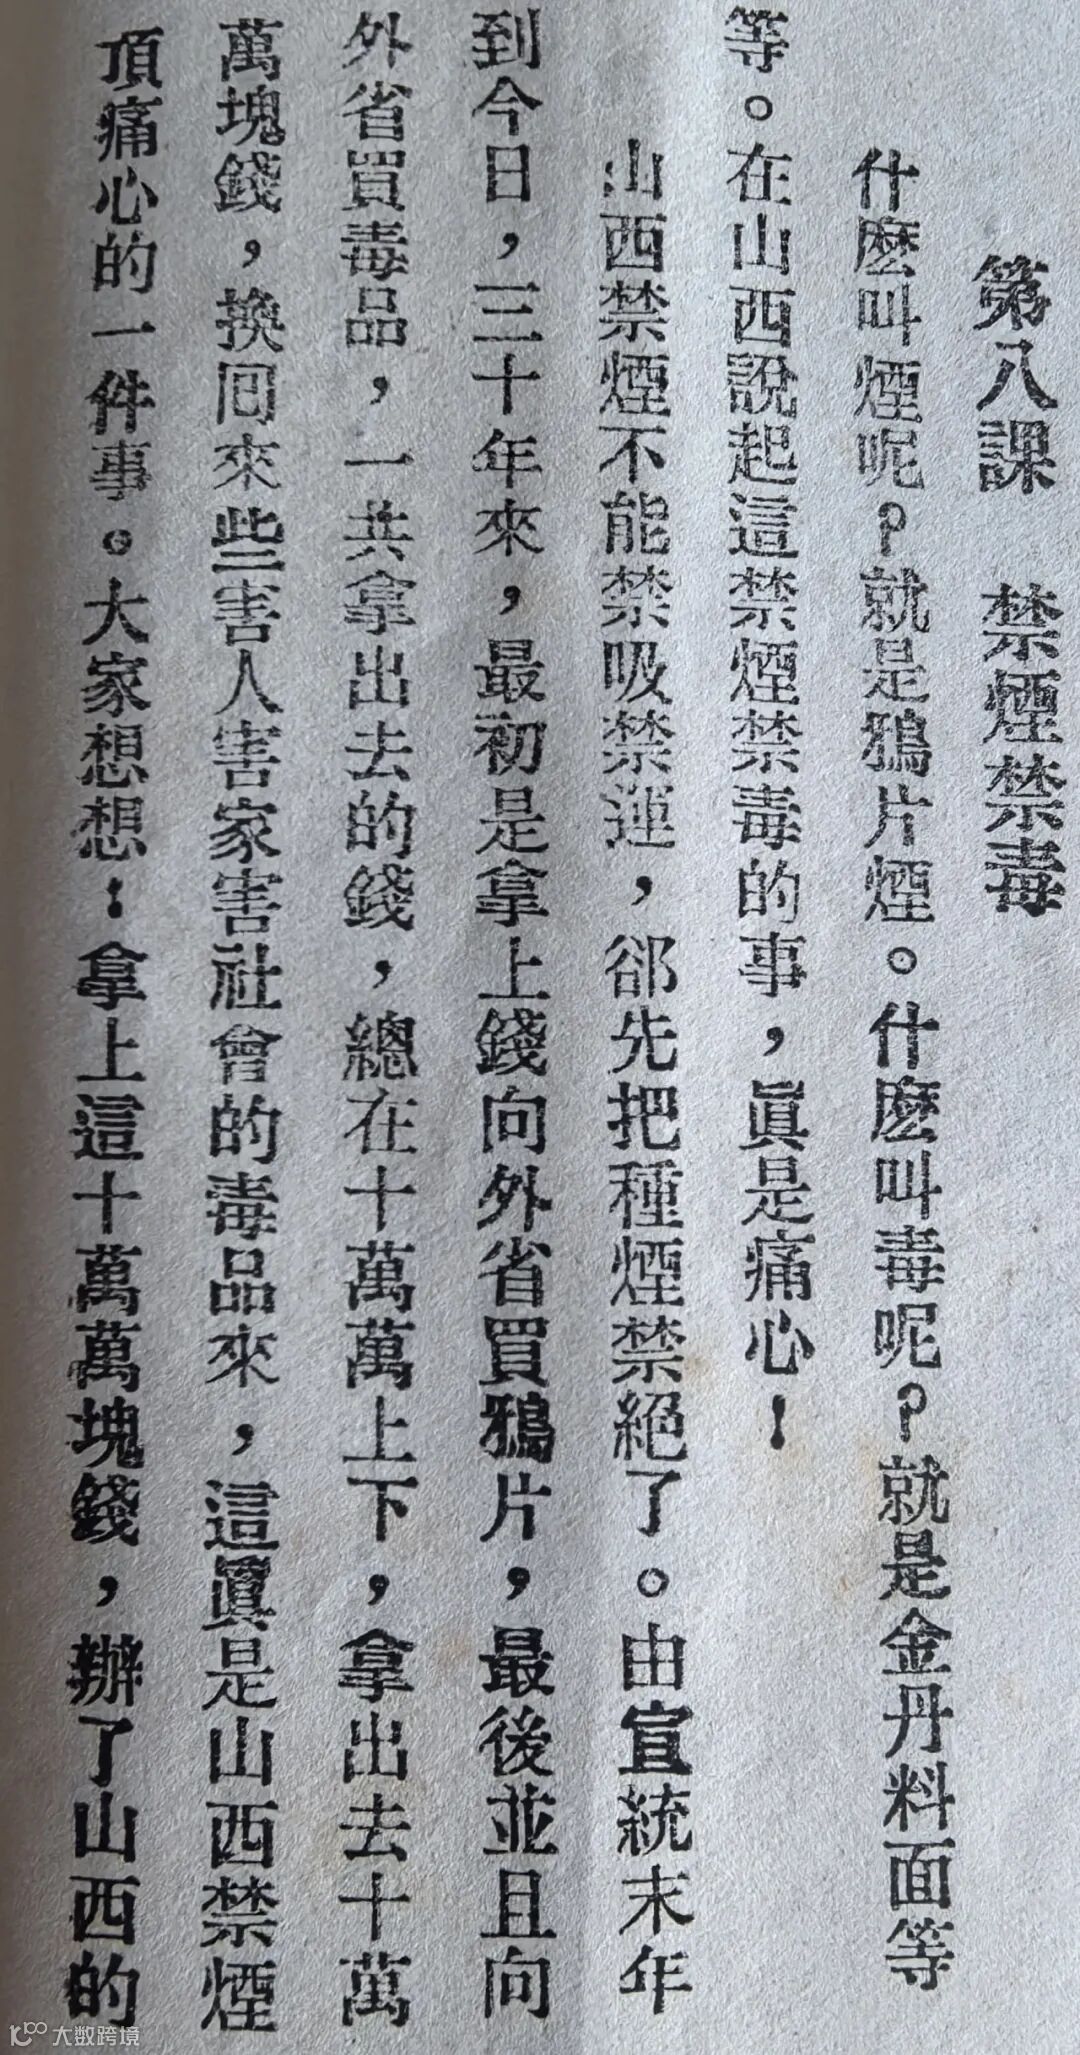 第八課　禁煙禁毒
什麽叫煙呢？就是鴉片煙。什麽叫毒呢？就是金丹料面等
等。在山西說起這禁煙禁毒的事，眞是痛心！
山西禁煙不能禁吸禁運，郤先把種煙禁絕了。由宣統末年
到今日，三十年來，最初是拿上錢向外省買鴉片，最後並且向
外省買毒品，一共拿出去的錢，總在十萬萬上下，拿出去十萬
萬塊錢，換囘來些害人害家害社會的毒品來，這眞是山西禁煙
頂痛心的一件事。大家想想！拿上這十萬萬塊錢，辦了山西的
大数跨境